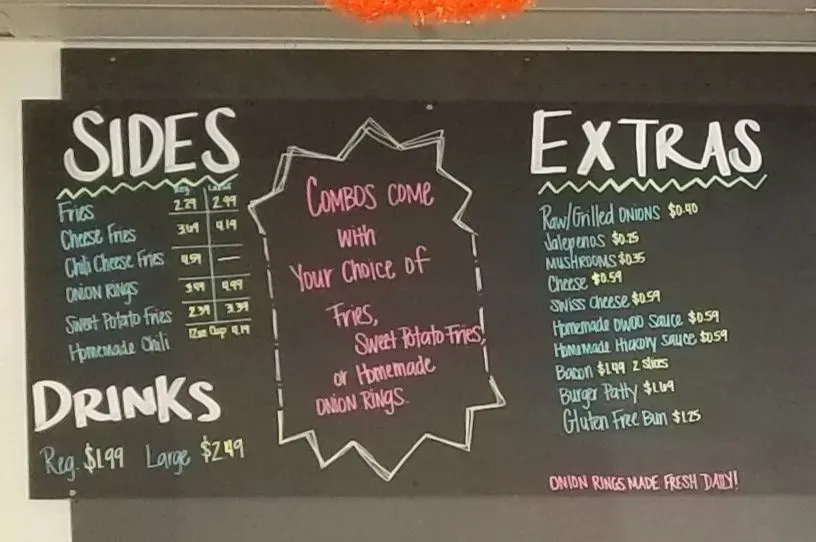 SIDES
Reg Large
Fries 2.29 2.99
Cheese Fries 3.69 4.19
Chili Cheese Fries 4.59 —
ONION RINGS 3.99 4.99
Sweet Potato Fries 2.39 3.39
Homemade Chili 12oz Cup 4.19
DRINKS
Reg. $1.99 Large $2.49
COMBOS COME
with
Your Choice of
Fries,
Sweet Potato Fries,
or Homemade
ONION RINGS.
EXTRAS
Raw/Grilled ONIONS $0.40
Jalepenos $0.25
MUSHROOMS $0.35
Cheese $0.59
Swiss Cheese $0.59
Homemade DWOO Sauce $0.59
Homemade Hickory Sauce $0.59
Bacon $1.49 2 slices
Burger Patty $1.69
Gluten Free Bun $1.25
ONION RINGS MADE FRESH DAILY!